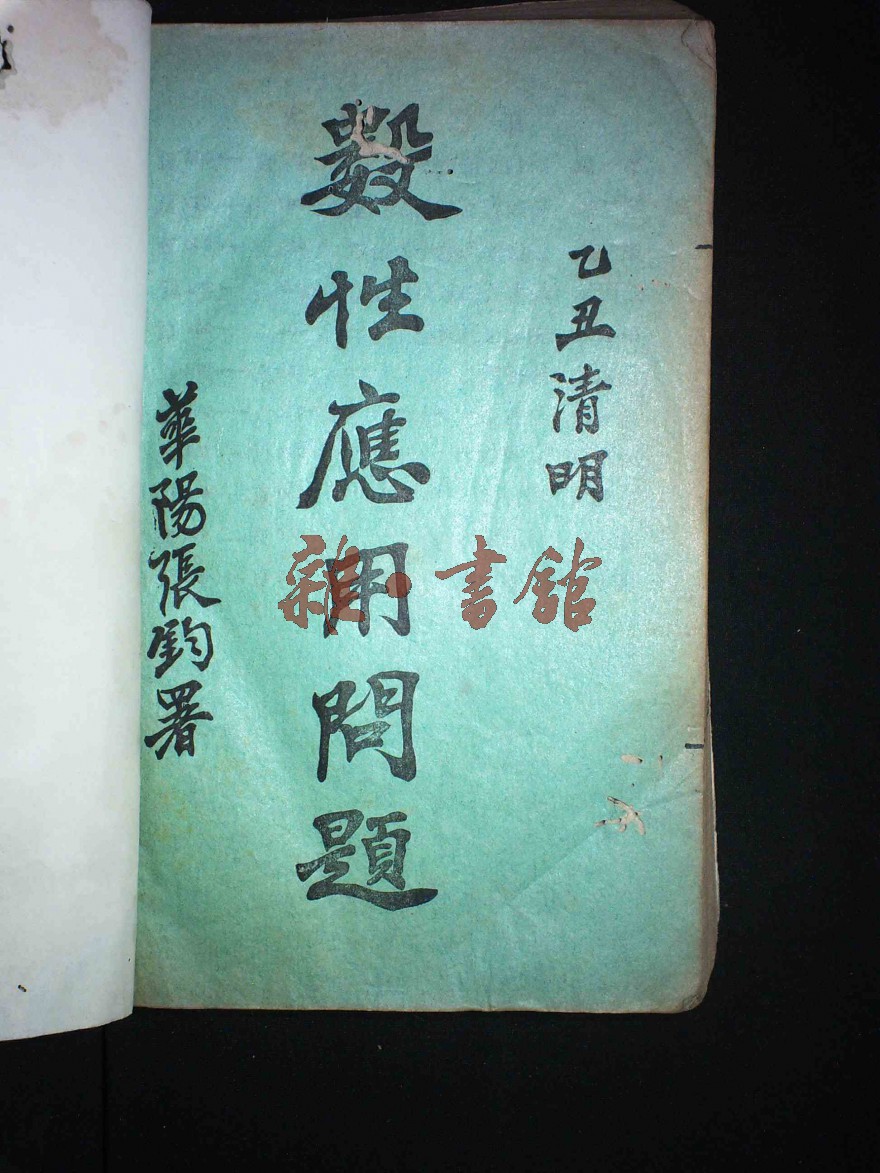 乙丑清明
數性應用問題
華陽張鈞署
雜·書館